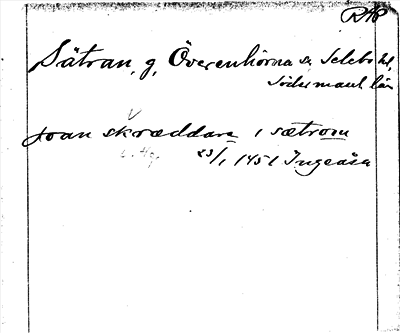 RAP
Sätran, g, Överenhörna s. Selebo hd,
Södermanl. län
Joan skræddare i sætrom
23/1 1451 Ingeåsa